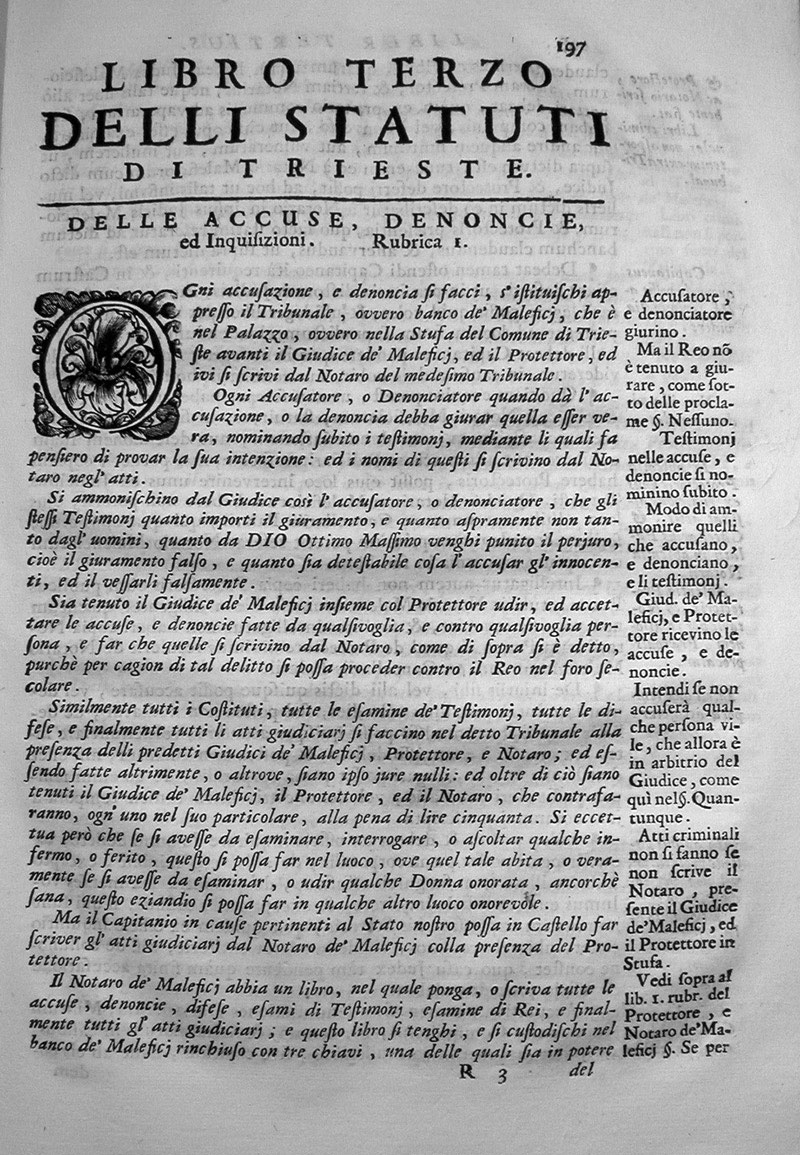 197
LIBRO TERZO
DELLI STATUTI
DI TRIESTE.
DELLE ACCUSE, DENONCIE,
ed Inquiſizioni. Rubrica 1.
OGni accuſazione, e denoncia ſi facci, s'iſtituiſchi ap-
preſſo il Tribunale, ovvero banco de' Maleficj, che è
nel Palazzo, ovvero nella Stufa del Comune di Trie-
ſte avanti il Giudice de' Maleficj, ed il Protettore, ed
ivi ſi ſcrivi dal Notaro del medeſimo Tribunale.
Ogni Accuſatore, o Denonciatore quando dà l' ac-
cuſazione, o la denoncia debba giurar quella eſſer ve-
ra, nominando ſubito i teſtimonj, mediante li quali fa
penſiero di provar la ſua intenzione: ed i nomi di queſti ſi ſcrivino dal No-
taro negl' atti.
Si ammoniſchino dal Giudice così l' accuſatore, o denonciatore, che gli
ſteſſi Teſtimonj quanto importi il giuramento, e quanto aſpramente non tan-
to dagl' uomini, quanto da DIO Ottimo Maſſimo venghi punito il perjuro,
cioè il giuramento falſo, e quanto ſia deteſtabile coſa l' accuſar gl' innocen-
ti, ed il veſſarli falſamente.
Sia tenuto il Giudice de' Maleficj inſieme col Protettore udir, ed accet-
tare le accuſe, e denoncie fatte da qualſivoglia, e contro qualſivoglia per-
ſona, e far che quelle ſi ſcrivino dal Notaro, come di ſopra ſi è detto,
purchè per cagion di tal delitto ſi poſſa proceder contro il Reo nel foro ſe-
colare.
Similmente tutti i Coſtituti, tutte le eſamine de' Teſtimonj, tutte le di-
feſe, e finalmente tutti li atti giudiciarj ſi faccino nel detto Tribunale alla
preſenza delli predetti Giudici de' Maleficj, Protettore, e Notaro; ed eſ-
ſendo fatte altrimente, o altrove, ſiano ipſo jure nulli: ed oltre di ciò ſiano
tenuti il Giudice de' Maleficj, il Protettore, ed il Notaro, che contrafa-
ranno, ogn' uno nel ſuo particolare, alla pena di lire cinquanta. Si eccet-
tua però che ſe ſi aveſſe da eſaminare, interrogare, o aſcoltar qualche in-
fermo, o ferito, queſto ſi poſſa far nel luoco, ove quel tale abita, o vera-
mente ſe ſi aveſſe da eſaminar, o udir qualche Donna onorata, ancorchè
ſana, queſto eziandio ſi poſſa far in qualche altro luoco onorevole.
Ma il Capitanio in cauſe pertinenti al Stato noſtro poſſa in Caſtello far
ſcriver gl' atti giudiciarj dal Notaro de' Maleficj colla preſenza del Pro-
tettore.
Il Notaro de' Maleficj abbia un libro, nel quale ponga, o ſcriva tutte le
accuſe, denoncie, difeſe, eſami di Teſtimonj, eſamine di Rei, e final-
mente tutti gl' atti giudiciarj; e queſto libro ſi tenghi, e ſi cuſtodiſchi nel
banco de' Maleficj rinchiuſo con tre chiavi, una delle quali ſia in potere
R 3 del
Accuſatore,
e denonciatore
giurino.
Ma il Reo nõ
è tenuto a giu-
rare, come ſot-
to delle procla-
me §. Neſſuno.
Teſtimonj
nelle accuſe, e
denoncie ſi no-
minino ſubito.
Modo di am-
monire quelli
che accuſano,
e denonciano,
e li teſtimonj.
Giud. de' Ma-
leficj, e Protet-
tore ricevino le
accuſe, e de-
noncie.
Intendi ſe non
accuſerà qual-
che perſona vi-
le, che allora è
in arbitrio del
Giudice, come
quì nel §. Quan-
tunque.
Atti criminali
non ſi fanno ſe
non ſcrive il
Notaro, pre-
ſente il Giudice
de' Maleficj, ed
il Protettore in
Stufa.
Vedi ſopra al
lib. 1. rubr. del
Protettore, e
Notaro de' Ma-
leficj §. Se per